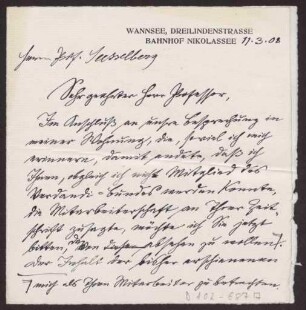 WANNSEE, DREILINDENSTRASSE
BAHNHOF NIKOLASSEE 11.3.08
Herrn Prof. Seesselberg
Sehr geehrter Herr Professor,
Im Anschluß an unsere Besprechung in
meiner Wohnung, die, soviel ich mich
erinnere, damit endete, daß ich
Ihnen, obgleich ich nicht Mitglied des
Werdandi-Bundes werden könnte,
die Mitarbeiterschaft an Ihrer Zeit-
schrift zusagte, möchte ich Sie jetzt
bitten, davon absehen zu wollen
Der Inhalt der bisher erschienenen
mich als Ihren Mitarbeiter zu betrachten.